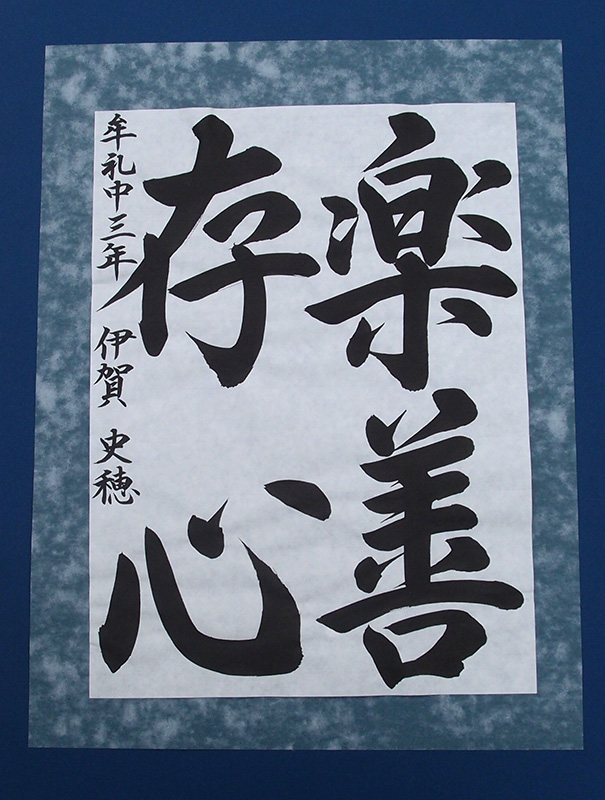 楽善
存心
牟礼中三年 伊賀 史穂